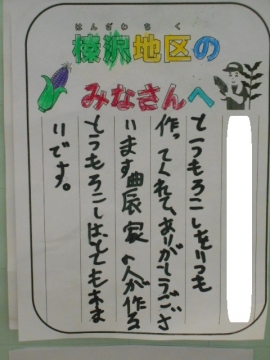 はんざわちく
榛沢地区の
みなさんへ
とうもろこしをいつも
作ってくれて、ありがとうござ
います農家の人が作る
とうもろこしは、とてもおま
いです。